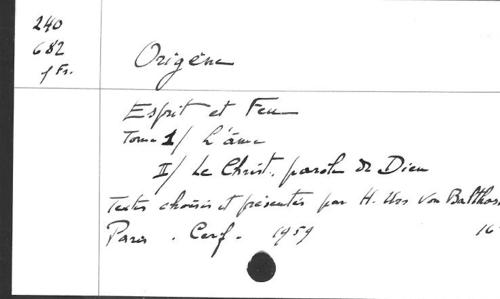 240
682
f Fr.
Origène
Esprit et Feu
Tome 1/ L'âme
II/ Le Christ, parole de Dieu
Textes choisis et présentés par H. Urs von Balthas
Paris. Cerf. 1959 16